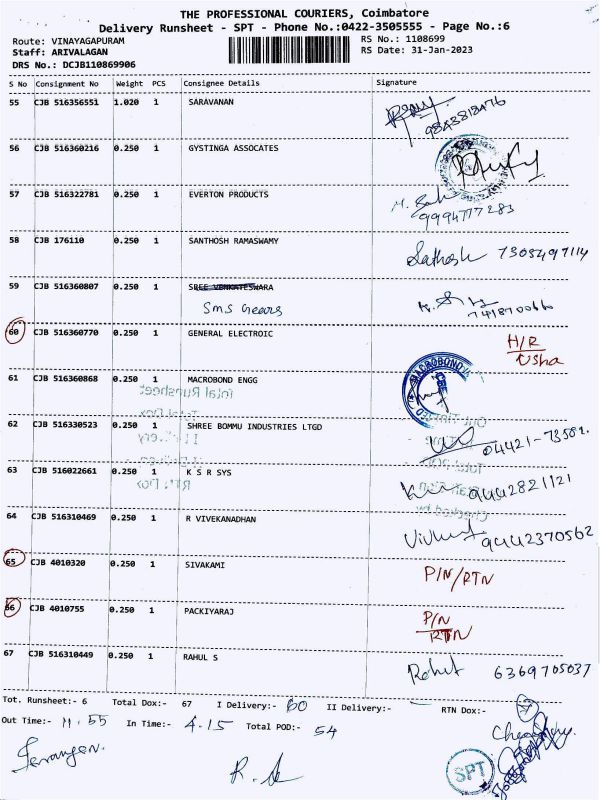 THE PROFESSIONAL COURIERS, Coimbatore
Delivery Runsheet - SPT - Phone No.:0422-3505555 - Page No.:6
Route: VINAYAGAPURAM
Staff: ARIVALAGAN
DRS No.: DCJB110869906
RS No.: 1108699
RS Date: 31-Jan-2023
S No Consignment No Weight PCS Consignee Details Signature
55 CJB 516356551 1.020 1 SARAVANAN
9843818476
56 CJB 516360216 0.250 1 GYSTINGA ASSOCATES
57 CJB 516322781 0.250 1 EVERTON PRODUCTS
9994777283
58 CJB 176110 0.250 1 SANTHOSH RAMASWAMY Sathosh 7305497114
59 CJB 516360807 0.250 1 SREE VENKATESWARA
SMS Gears
60 CJB 516360770 0.250 1 GENERAL ELECTROIC H/R
Usha
61 CJB 516360868 0.250 1 MACROBOND ENGG
MACROBOND
62 CJB 516330523 0.250 1 SHREE BOMMU INDUSTRIES LTGD
63 CJB 516022661 0.250 1 K S R SYS 9442821121
64 CJB 516310469 0.250 1 R VIVEKANADHAN 9442370562
65 CJB 4010320 0.250 1 SIVAKAMI P/N/RTN
66 CJB 4010755 0.250 1 PACKIYARAJ P/N
RTN
67 CJB 516310449 0.250 1 RAHUL S 6369705037
Tot. Runsheet:- 6 Total Dox:- 67 I Delivery:- 60 II Delivery:- RTN Dox:-
Out Time:- 11.55 In Time:- 4.15 Total POD:- 54
SPT